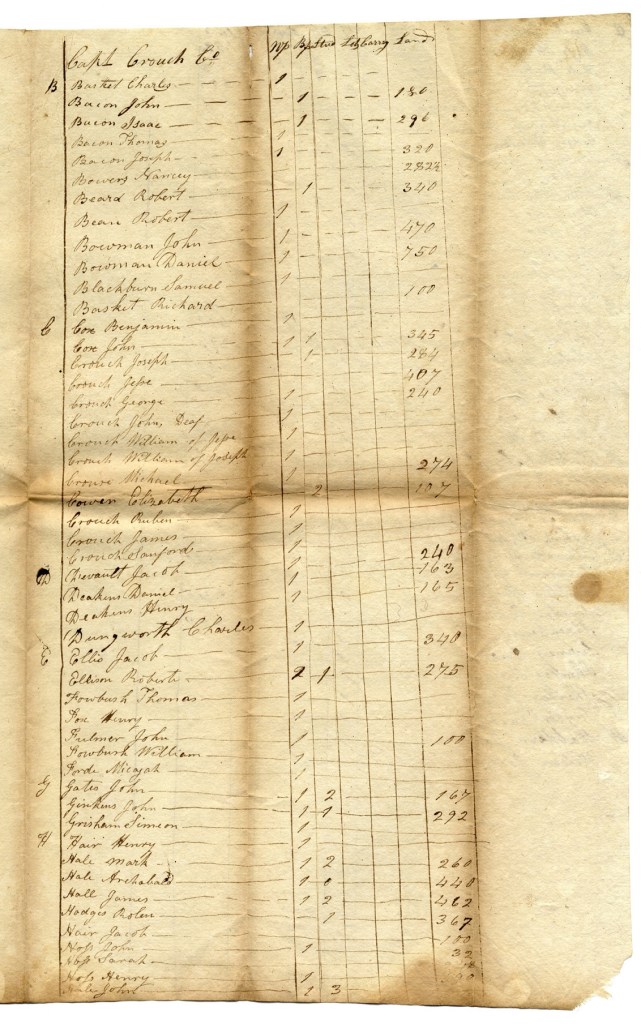 Capt Crouch Co Wp Bp Stud Lots Carry Land
B Basket Charles 1
Bacon John 1 180
Bacon Isaac 1 296
Bacon Thomas 1
Bacon Joseph 1 320
Bowers Nancy 282½
Beard Robert 1 340
Bean Robert 1
Bowman John 1 470
Bowman Daniel 1 750
Blackburn Samuel 1
Basket Richard 100
C Cox Benjamin 1
Cox John 1 1 345
Crouch Joseph 1 284
Crouch Jesse 407
Crouch George 1 240
Crouch John, Deaf 1
Crouch William of Jesse 1
Crouch William of Joseph 1
Crouse Michael 1 274
Cowen Elizabeth 2 107
Crouch Ruben 1
Crouch James 1
Crouch Sanford 1
D Devault Jacob 1 240
Deakins Daniel 1 163
Deakins Henry 165
Dungworth Charles 1
E Ellis Jacob 1 340
Ellison Robert 2 1 275
Fowbush Thomas 1
Fox Henry 1
Fulmer John 1 100
Fowbush William 1
Forde Micajah 1
G Gates John 1 2 167
Ginkens John 1 1 292
Grisham Simeon 1
H Hair Henry 1
Hale Mark 1 2 260
Hale Archabald 1 0 440
Hall James 1 2 462
Hodges Rolen 1 367
Hair Jacob 100
Hoss John 1 32
Hoss Sarah
Hoss Henry 1
Hale John 1 3